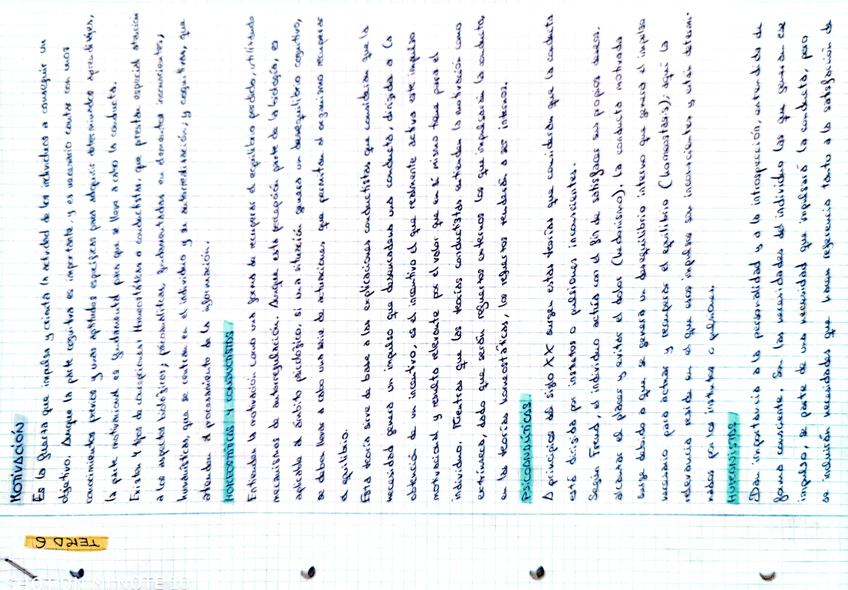 TEMA 6
MOTIVACIÓN
Es la fuerza que impulsa y orienta la actividad de los individuos a conseguir un
objetivo. Aunque la parte cognitiva es importante, y es necesario contar con unos
conocimientos previos y unas aptitudes específicas para adquirir determinados aprendizajes,
la parte motivacional es fundamental para que se lleve a cabo la conducta.
Existen 4 tipos de concepciones: Homeostáticas o conductistas, que prestan especial atención
a los aspectos biológicos; psicoanalíticas, fundamentadas en elementos inconscientes;
humanísticas, que se centran en el individuo y su autorrealización; y cognitivas, que
atienden al procesamiento de la información.
HOMEOSTÁTICAS Y CONDUCTISTAS
Entienden la motivación como una forma de recuperar el equilibrio perdido, utilizando
mecanismos de autorregulación. Aunque esta percepción parte de la biología, es
aplicable al ámbito psicológico, si una situación genera un desequilibrio cognitivo,
se deben llevar a cabo una serie de actuaciones que permitan al organismo recuperar
el equilibrio.
Esta teoría sirve de base a las explicaciones conductistas que consideran que la
necesidad genera un impulso que desencadena una conducta, dirigida a la
obtención de un incentivo, es el incentivo el que realmente activa este impulso
motivacional y resulta relevante por el valor que en sí mismo tiene para el
individuo. Mientras que las teorías conductistas entienden la motivación como
extrínseca, dado que serán refuerzos externos los que impulsarán la conducta,
en las teorías homeostáticas, los refuerzos tenderán a ser internos.
PSICOANALÍTICAS
A principios del siglo XX surgen estas teorías que consideran que la conducta
está dirigida por instintos o pulsiones inconscientes.
Según Freud, el individuo actúa con el fin de satisfacer sus propios deseos.
alcanzar el placer y evitar el dolor (hedonismo), la conducta motivada
surge debido a que se genera un desequilibrio interno que genera el impulso
necesario para actuar y recuperar el equilibrio (homeostasis); aquí la
relevancia reside en el que esos impulsos son inconscientes y están determi-
nados por los instintos o pulsiones.
HUMANISTAS
Dan importancia a la personalidad y a la introspección, entendida de
forma consciente. Son las necesidades del individuo las que generan ese
impulso, se parte de una necesidad que impulsará la conducta, pero
se incluirán necesidades que hacen referencia tanto a la satisfacción de